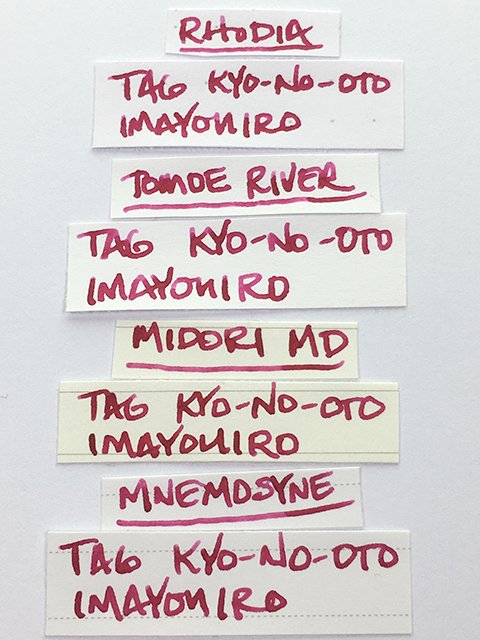 RHODIA
TAG KYO-NO-OTO
IMAYOUIRO
TOMOE RIVER
TAG KYO-NO-OTO
IMAYOUIRO
MIDORI MD
TAG KYO-NO-OTO
IMAYOUIRO
MNEMOSYNE
TAG KYO-NO-OTO
IMAYOUIRO